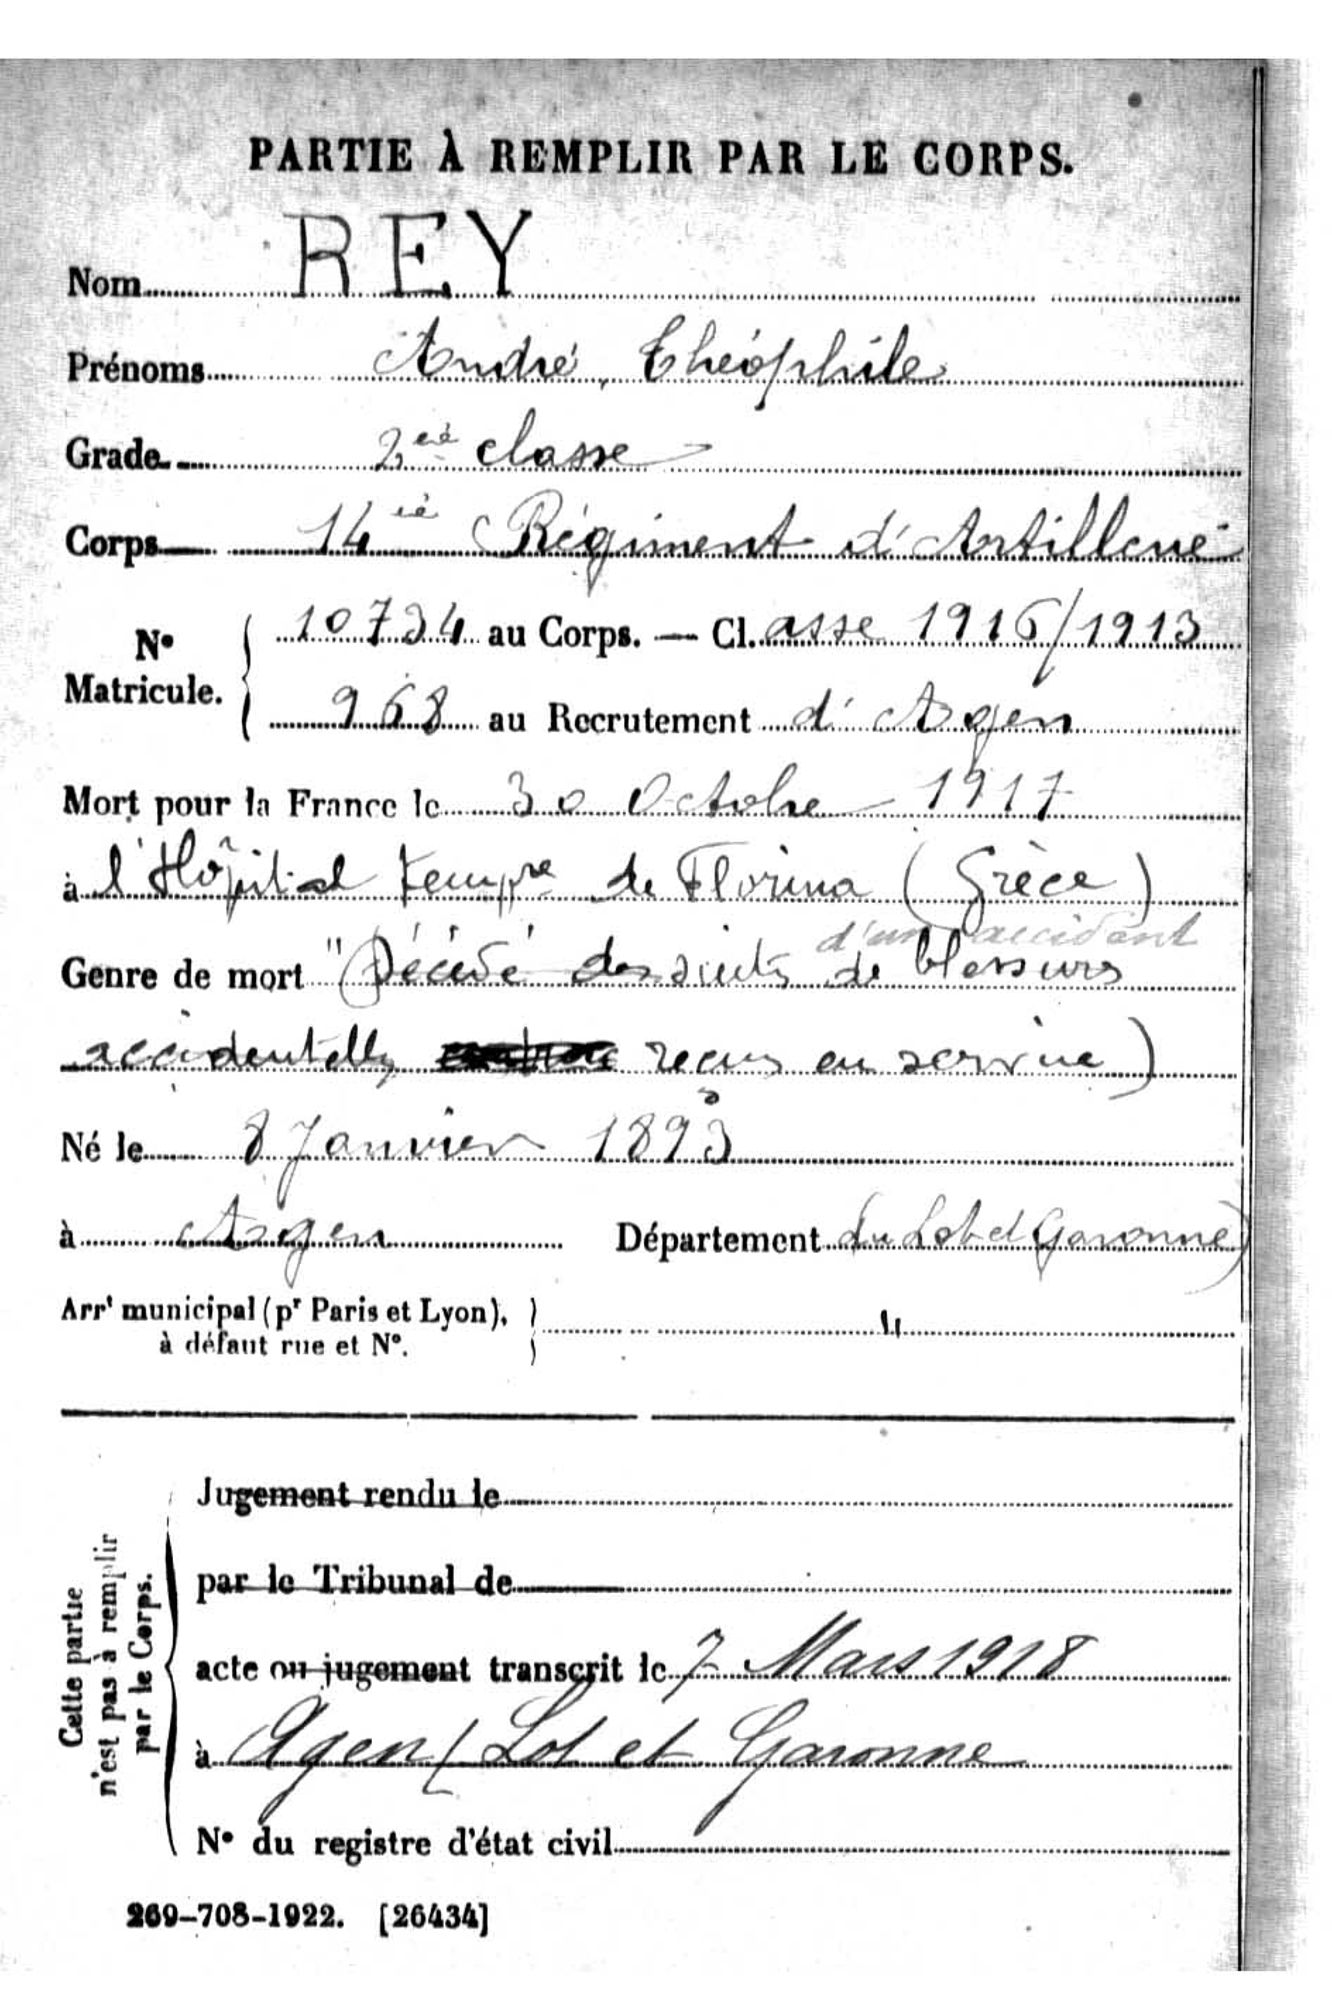 PARTIE À REMPLIR PAR LE CORPS.
Nom REY
Prénoms André, Théophile
Grade 2eè classe
Corps 14iè Régiment d'Artillerie
No Matricule. 10734 au Corps. — Cl.asse 1916/1913
968 au Recrutement d'Agen
Mort pour la France le 30 Octobre 1917
à l'Hôpital tempre de Florina (Grèce)
d'un accident
Genre de mort "(Décédé des suites de blessures
accidentelles reçues en service)
Né le 8 Janvier 1893
à Agen Département du Lot et Garonne)
Arrt municipal (pr Paris et Lyon), à défaut rue et No. "
Cette partie n'est pas à remplir par le Corps.
Jugement rendu le
par le Tribunal de
acte ou jugement transcrit le 7 Mars 1918
à Agen (Lot et Garonne
No du registre d'état civil
269-708-1922. [26434]